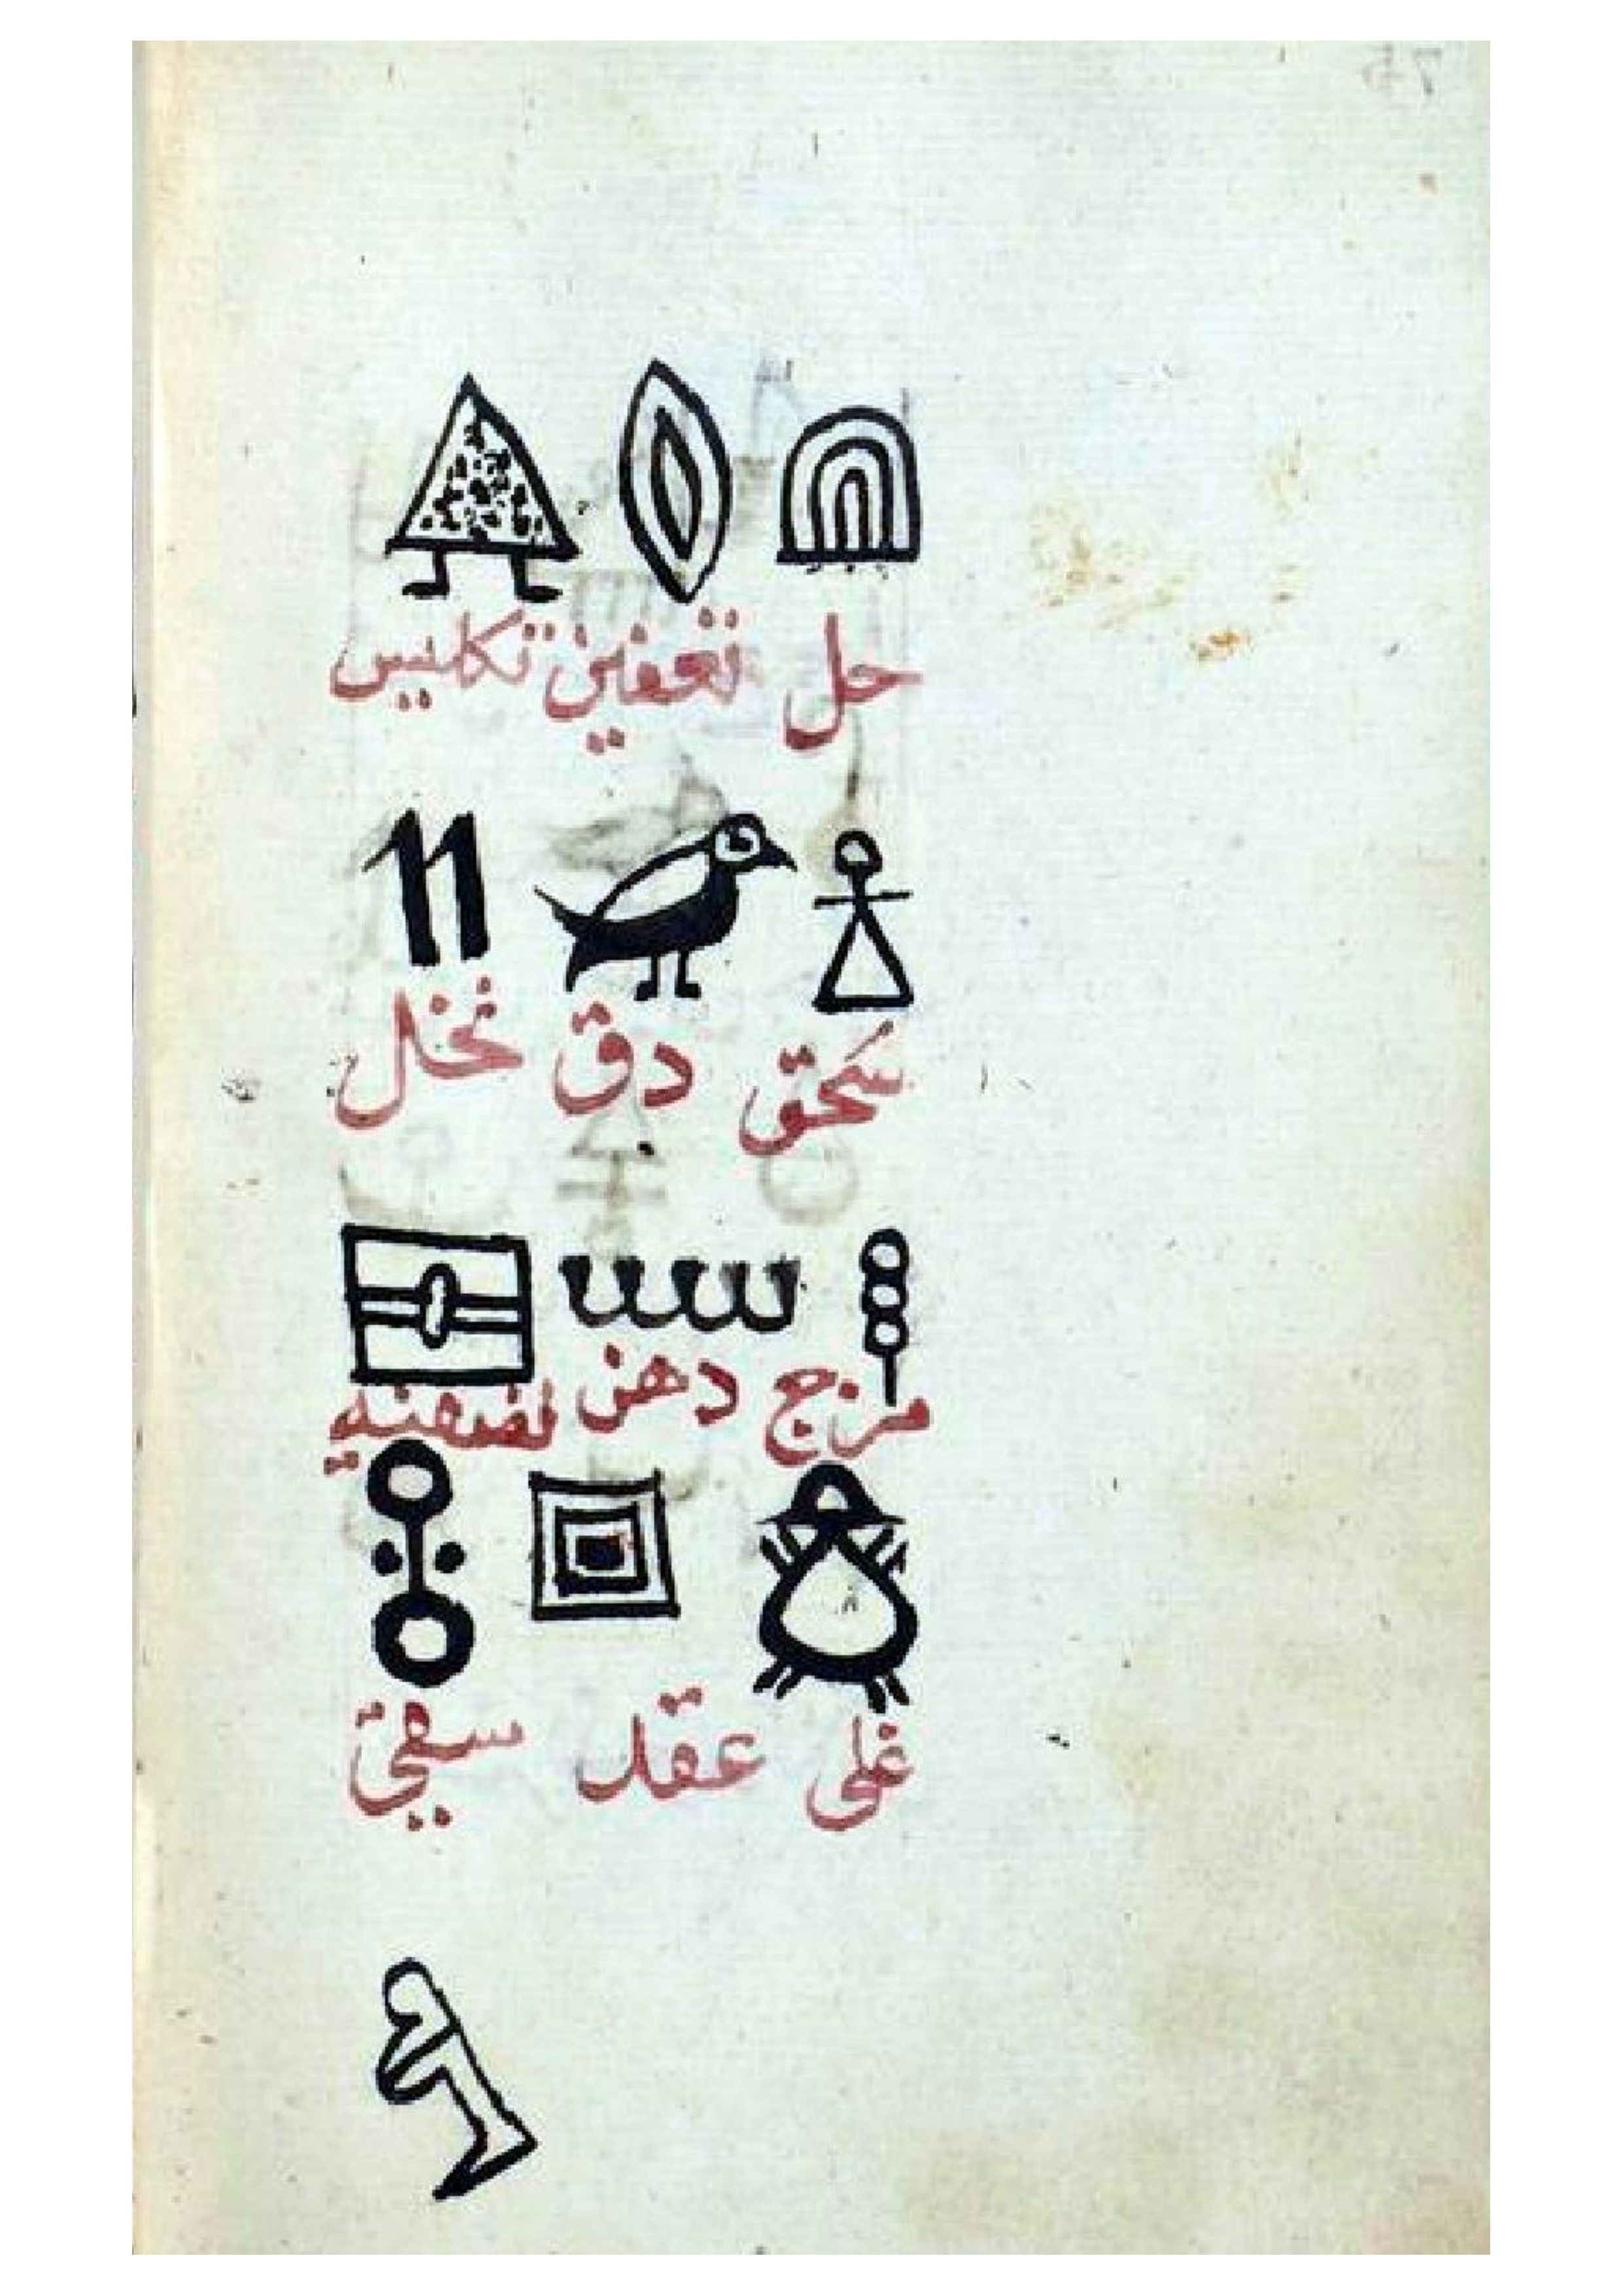 حل تعفين تكليس
سَحق دق نخل
مزج دهن تصفية
غلى عقد سقي